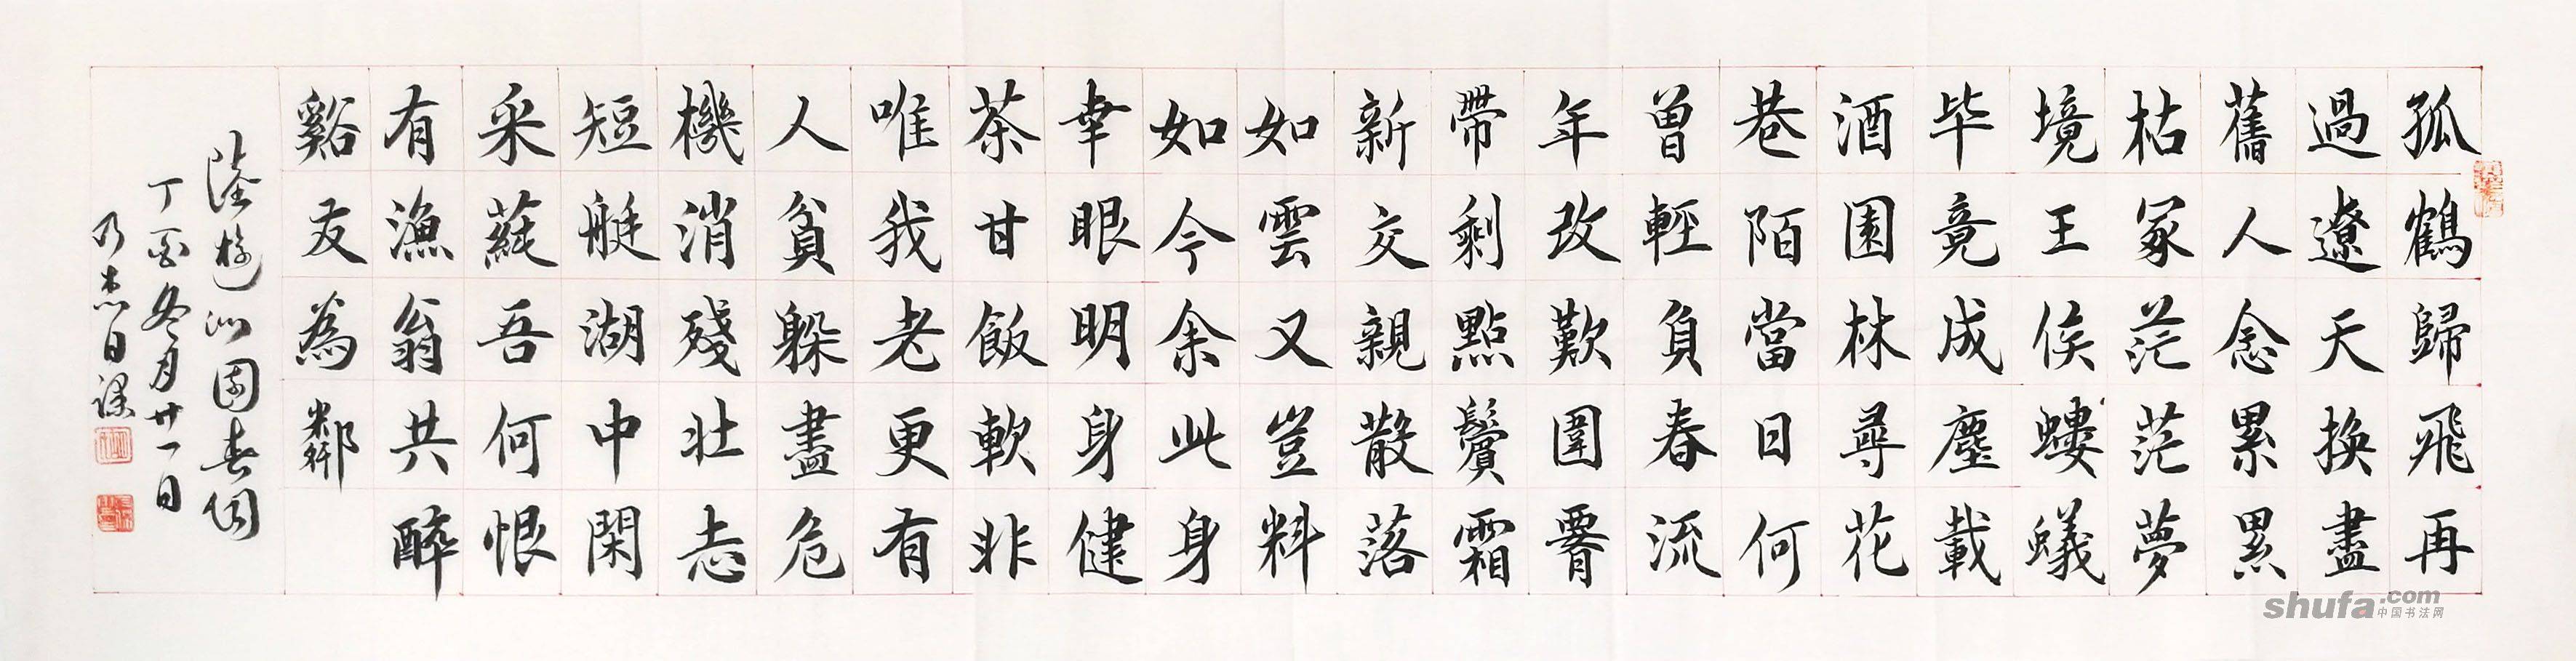 孤鶴歸飛再
過遼天換盡
舊人念累累
枯冢茫茫夢
境王侯螻蟻
毕竟成塵載
酒園林尋花
巷陌當日何
曽輕負春流
年改歎圍腰
帶剩點鬢霜
新交親散落
如雲又豈料
如今余此身
幸眼明身健
茶甘飯軟非
唯我老更有
人貧躲盡危
機消殘壯志
短艇湖中閑
采蓴吾何恨
有漁翁共醉
谿友為鄰
陸游沁園春詞
丁酉冬月廿一日
乃杰日課
shufa.com
中国书法网